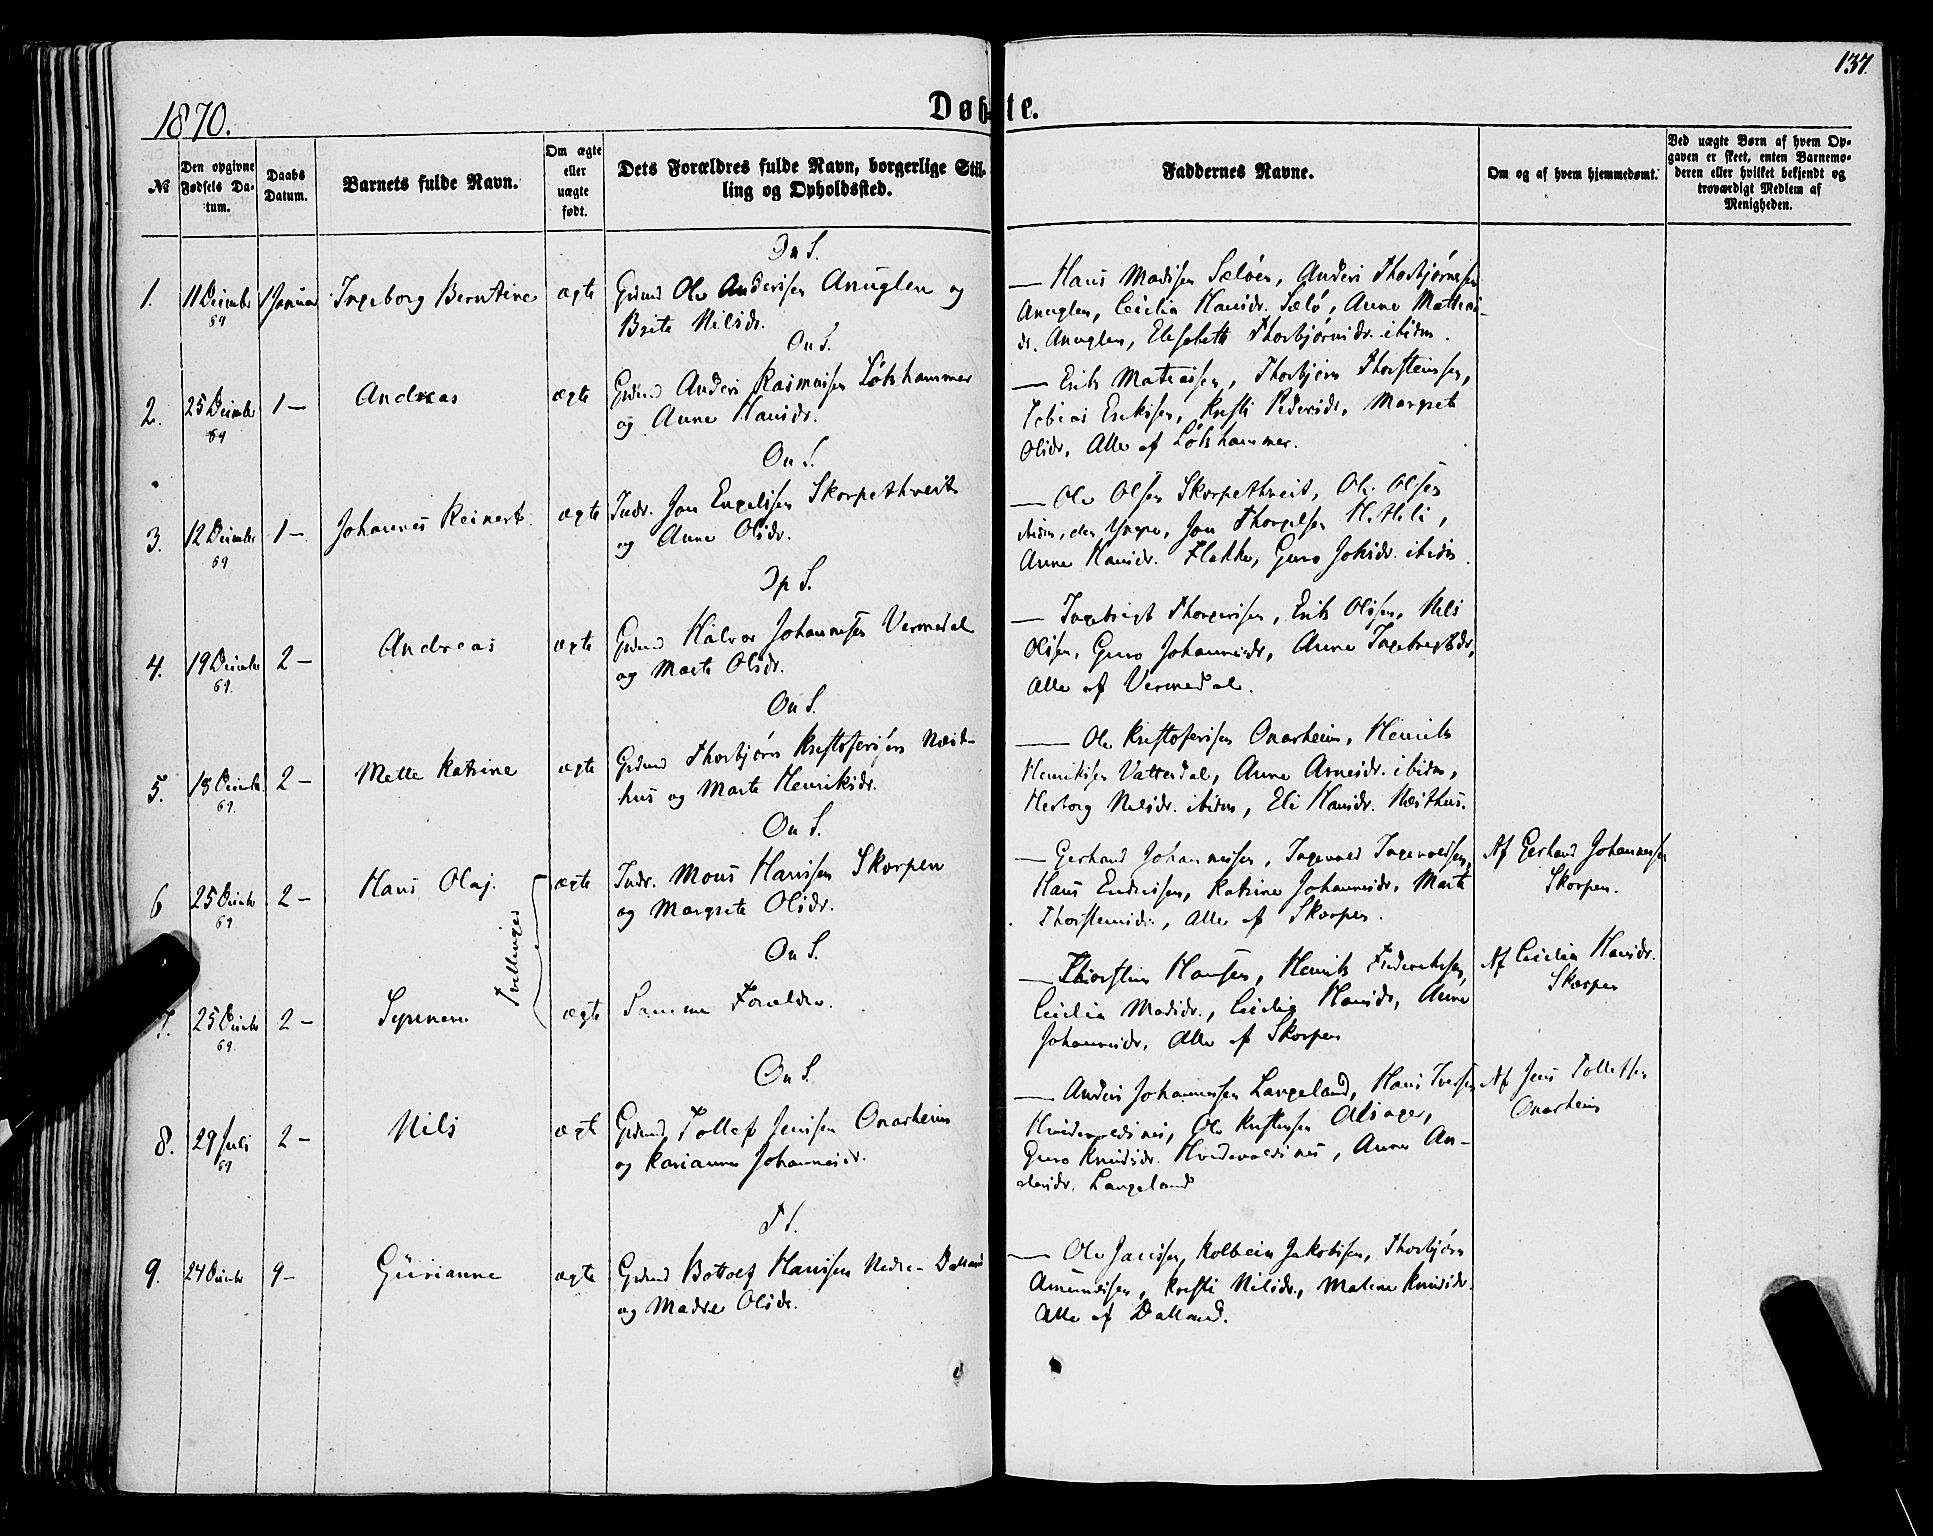 137.
1870.
Døbte.
№
Den opgivne Fødsels Datum.
Daabs Datum.
Barnets fulde Navn.
Om ægte eller uægte født.
Dets Forældres fulde Navn, borgerlige Stilling og Opholdssted.
Faddernes Navne.
Om og af hvem hjemmedømt.
Ved uægte Børn af hvem Opgaven er skeet, enten Barnemoderen eller hvilket bekjendt og troværdigt Medlem af Menigheden.
On S.
1. 11 Decimbr 69 1 Januar Ingeborg Berntine ægte Grdmd Ole Andersen Anuglen og
Brite Nilsdr.
— Hans Madsen Seløen, Anders Thorbjørnsen
Anuglen, Cecilia Hansdr. Selø, Anne Mathias-
dr. Anuglen, Elisabeth Thorbjørnsdr. ibidm.
On S.
2. 25 Decimbr 69 1 — Andreas ægte Grdmd Anders Rasmusen Løkhammer
og Anne Hansdr.
— Erik Matiasen, Thorbjørn Thorsteinsen,
Tobias Eriksen, Kristi Pedersdr, Margrete
Olsdr, Alle af Løkhammer.
On S.
3. 12 Decimbr 69 1 — Johannes Reinert ægte Indr. Jon Engelsen Skorpethveit
og Anne Olsdr.
— Ole Olsen Skorpethveit, Ole Olsen
ibidm, den Yngre, Jon
Anne Hansdr. Flakke, Guro ibidm.
Op S.
4. 19 Decimbr 69. 2 — Andreas ægte Grdmd Halvor Johannesen Vermedal
og Marte Olsdr.
— Ingebrigt Erik Olsen, Nils
Olsen, Guro Johannesdr, Anne Ingebrigtsdr,
Alle af Vermedal.
On S.
5. 18 Decimbr 69. 2 — Mette Katrine ægte Grdmd Thorbjørn Kristofersen Næst-
hus og Marte Henriksdr.
— Ole Kristofersen Onarheim, Henrik
Henriksen Vatterdal, Anne Arnesdr. ibidm,
Herborg Nilsdr. ibidm, Eli Hansdr. Næsthus.
On S.
6 25 Decimbr 69 2 — Hans Olaj. ægte Indr. Mons Hansen Skorpen
og Margrete Olsdr.
— Gerhard Johannesen, Ingevald Ingevaldsen,
Hans Endresen, Katrine Johannesdr, Marte
Thorsteinsdr, Alle af Skorpen.
Af Gerhard Johannesen
Skorpen.
Tvellinger
On S.
7. 25 Decimbr 69. 2 — Synneve ægte Samme Forældre.
— Thorstein Hansen, Henrik Frederiksen,
Cecilia Madsdr., Cecilia Hansdr, Anne
Johannesdr, Alle af Skorpen
Af Cecilia Hansdr.
Skorpen
On S.
8. 29 Juli 69 2 — Nils ægte Grdmd Tollef Jensen Onarheim
og Karianne Johannesdr.
— Anders Johannesen Langeland, Hans Iversen
Ole Kristensen Alsager,
Guro Knudsdr. Anne An-
dersdr. Langeland
Af Jens Tollefsen
Onarheim
9. 24 Decimbr 9 — Gurianne ægte Grdmd Botolf Hansen Nedre-Dalland
og Madse Olsdr.
— Ole Jansen, Kolbein Jakobsen, Thorbjørn
Amundsen, Kristi Nilsdr., Malene Knudsdr.
Alle af Dalland.